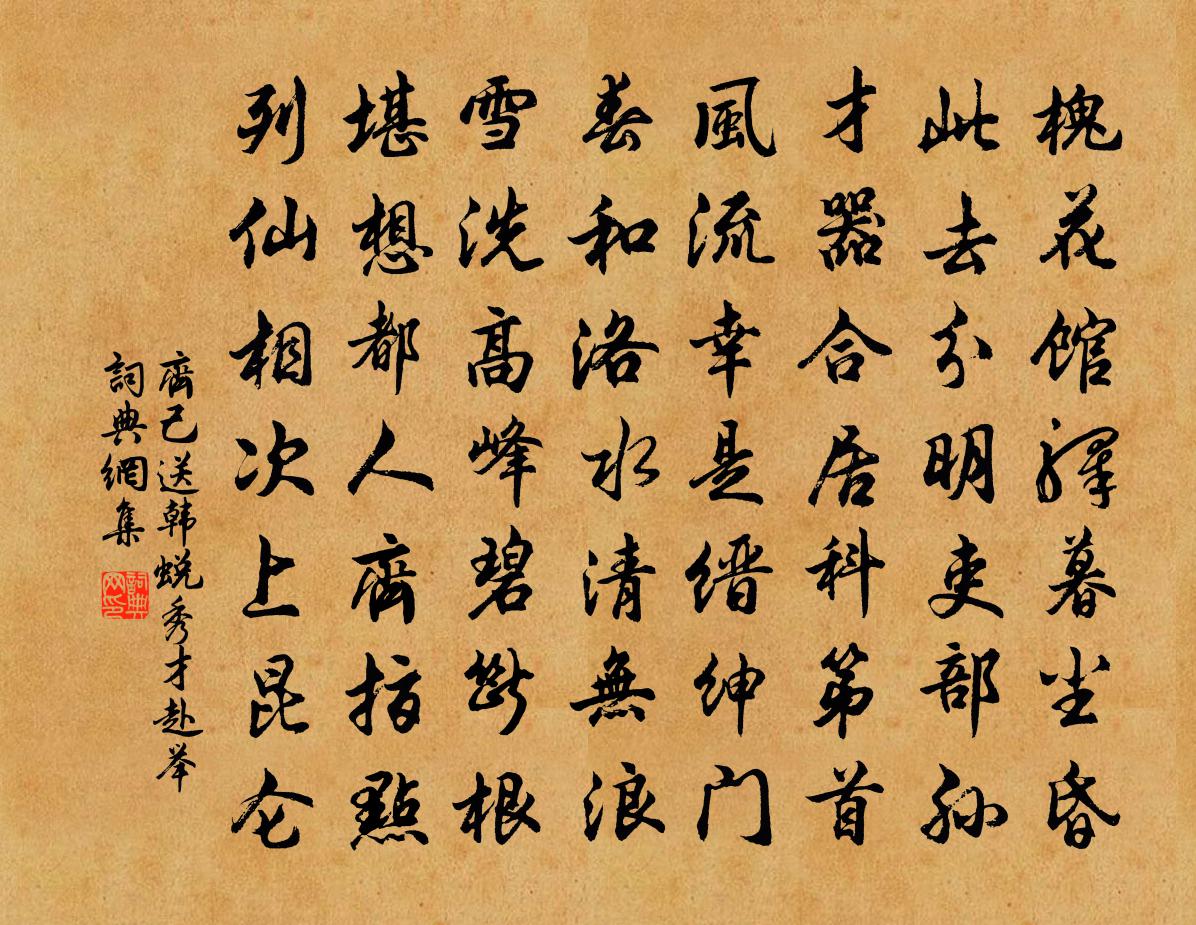 槐花館驛暮尘昏
此去分明吏部孙
才器合居科第首
風流幸是缙紳门
春和洛水清無浪
雪洗高峰碧斷根
堪想都人齊指點
列仙相次上昆仑
齊己送韩蜕秀才赴举
詞典網集
詞典网印